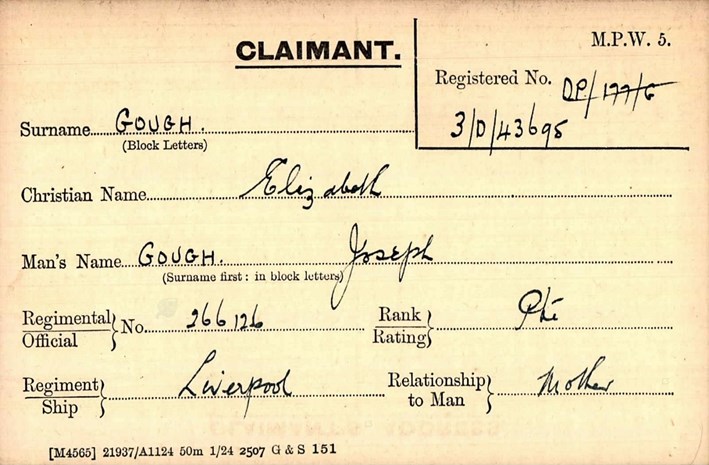 CLAIMANT.
M.P.W. 5.
Registered No. DP/177/G
3/D/43695
Surname GOUGH.
(Block Letters)
Christian Name Elizabeth
Man's Name GOUGH. Joseph
(Surname first: in block letters)
Regimental
Official } No. 266126
Rank
Rating } Pte
Regiment
Ship } Liverpool
Relationship
to Man } Mother
[M4565] 21937/A1124 50m 1/24 2507 G & S 151